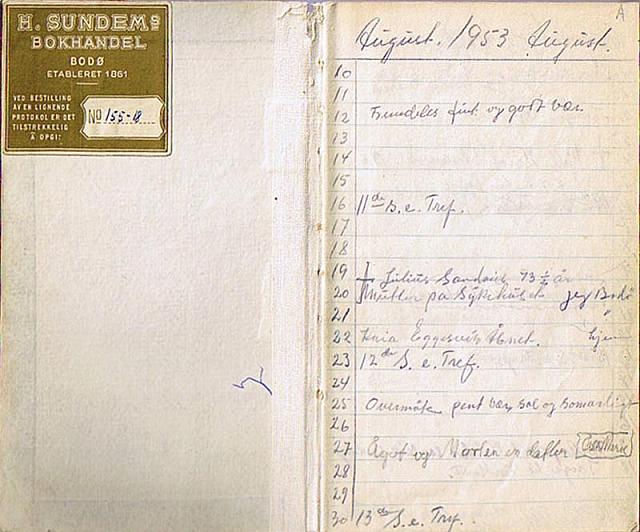 H. SUNDEMS
BOKHANDEL
BODØ
ETABLERET 1861
VED BESTILLING
AV EN LIGNENDE
PROTOKOL ER DET
TILSTREKKELIG
Å OPGI:
No 155-18
A
August. 1953 August.
10
11
12 Fremdeles fint og godt vær.
13
14
15
16 11 de s. e. Tref.
17
18
19 Julius 73 1/2 år
20 på Sykehuset jeg Bodø
21 "
22 Eggesvik hjem
23 12 de S. e. Tref.
24
25 Overmåte pent vær sol og somarligt
26
27 Ågot og Morten en datter
28
29
30 13 de S. e. Tref.